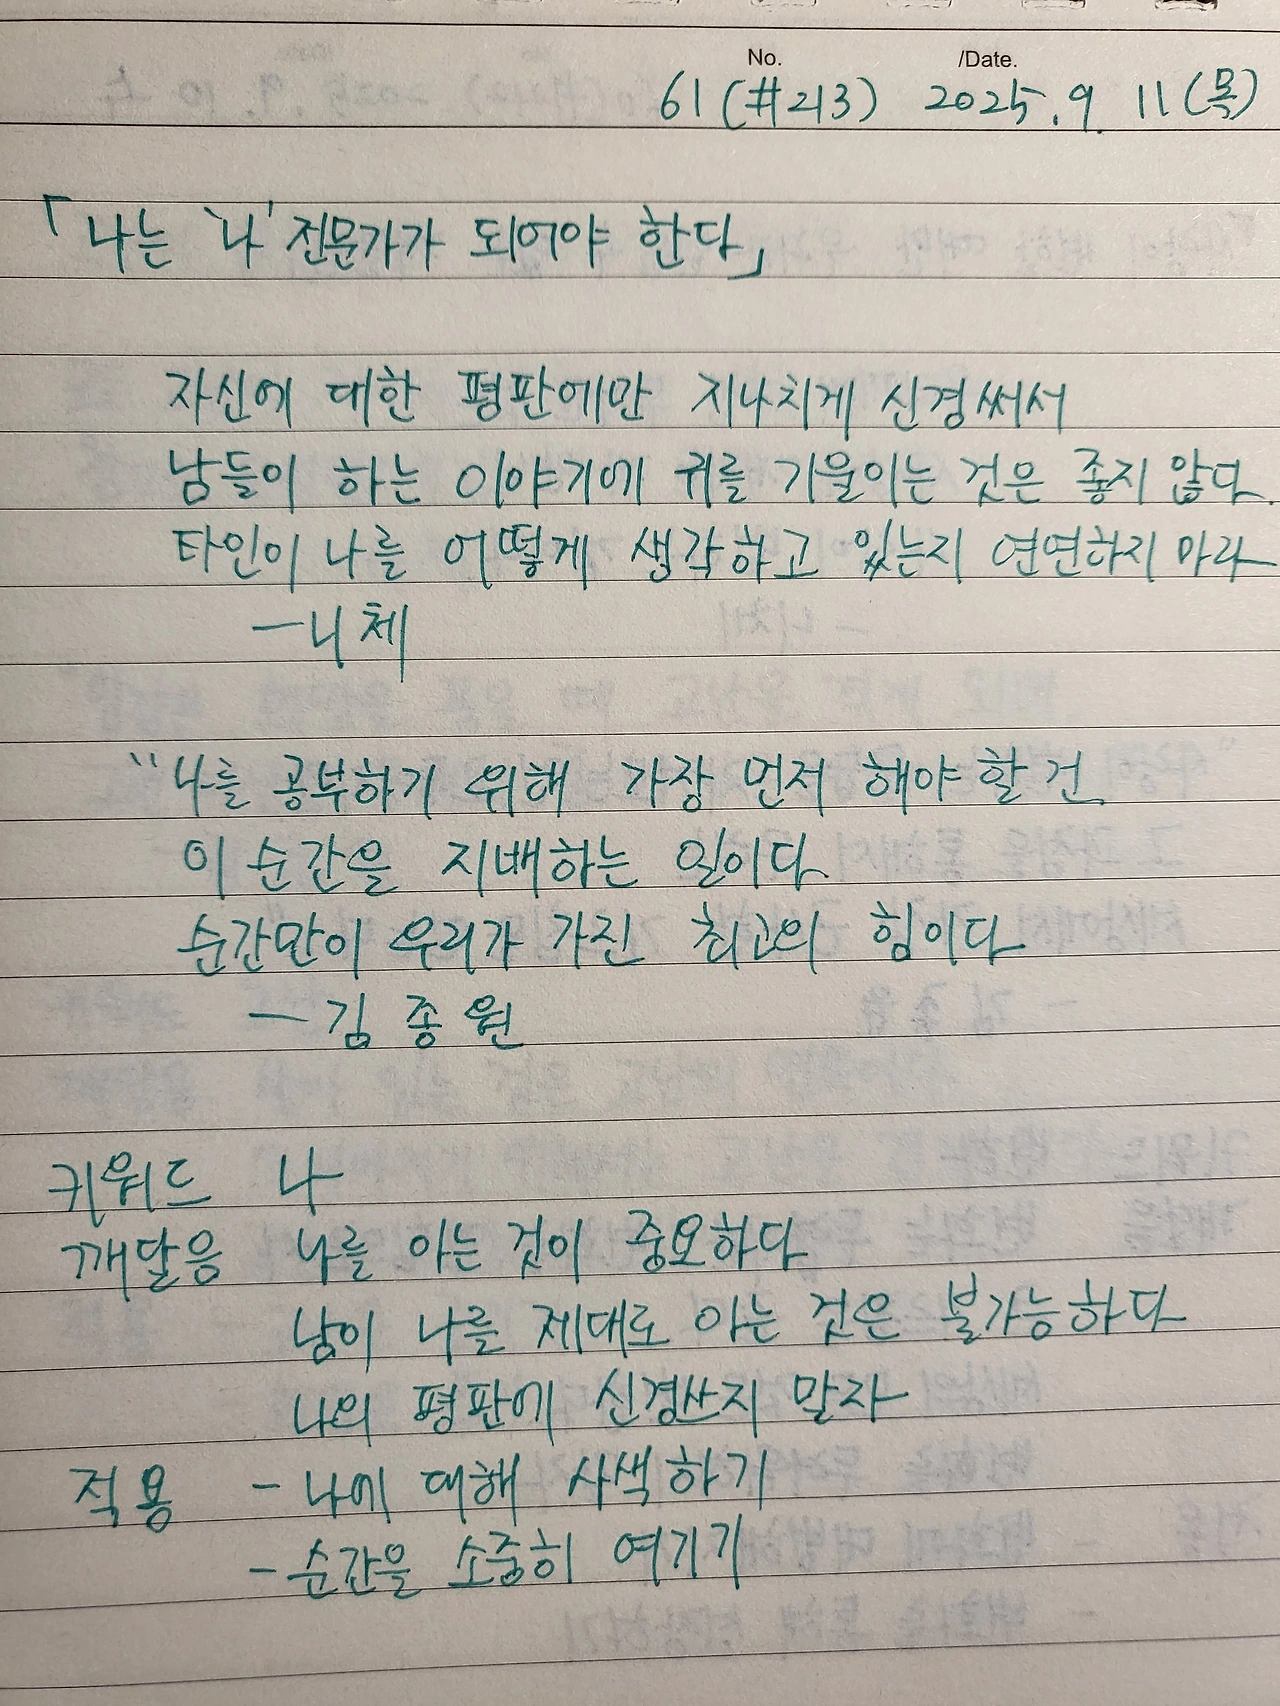 No. /Date.
61 (#213) 2025. 9. 11 (목)
「나는 '나' 전문가가 되어야 한다」
자신에 대한 평판에만 지나치게 신경써서
남들이 하는 이야기에 귀를 기울이는 것은 좋지 않다.
타인이 나를 어떻게 생각하고 있는지 연연하지 마라
- 니체
"나를 공부하기 위해 가장 먼저 해야 할 건
이 순간을 지배하는 일이다.
순간만이 우리가 가진 최고의 힘이다
- 김종원
키워드 나
깨달음 나를 아는 것이 중요하다
남이 나를 제대로 아는 것은 불가능하다
나의 평판에 신경쓰지 말자
적용 - 나에 대해 사색하기
- 순간을 소중히 여기기